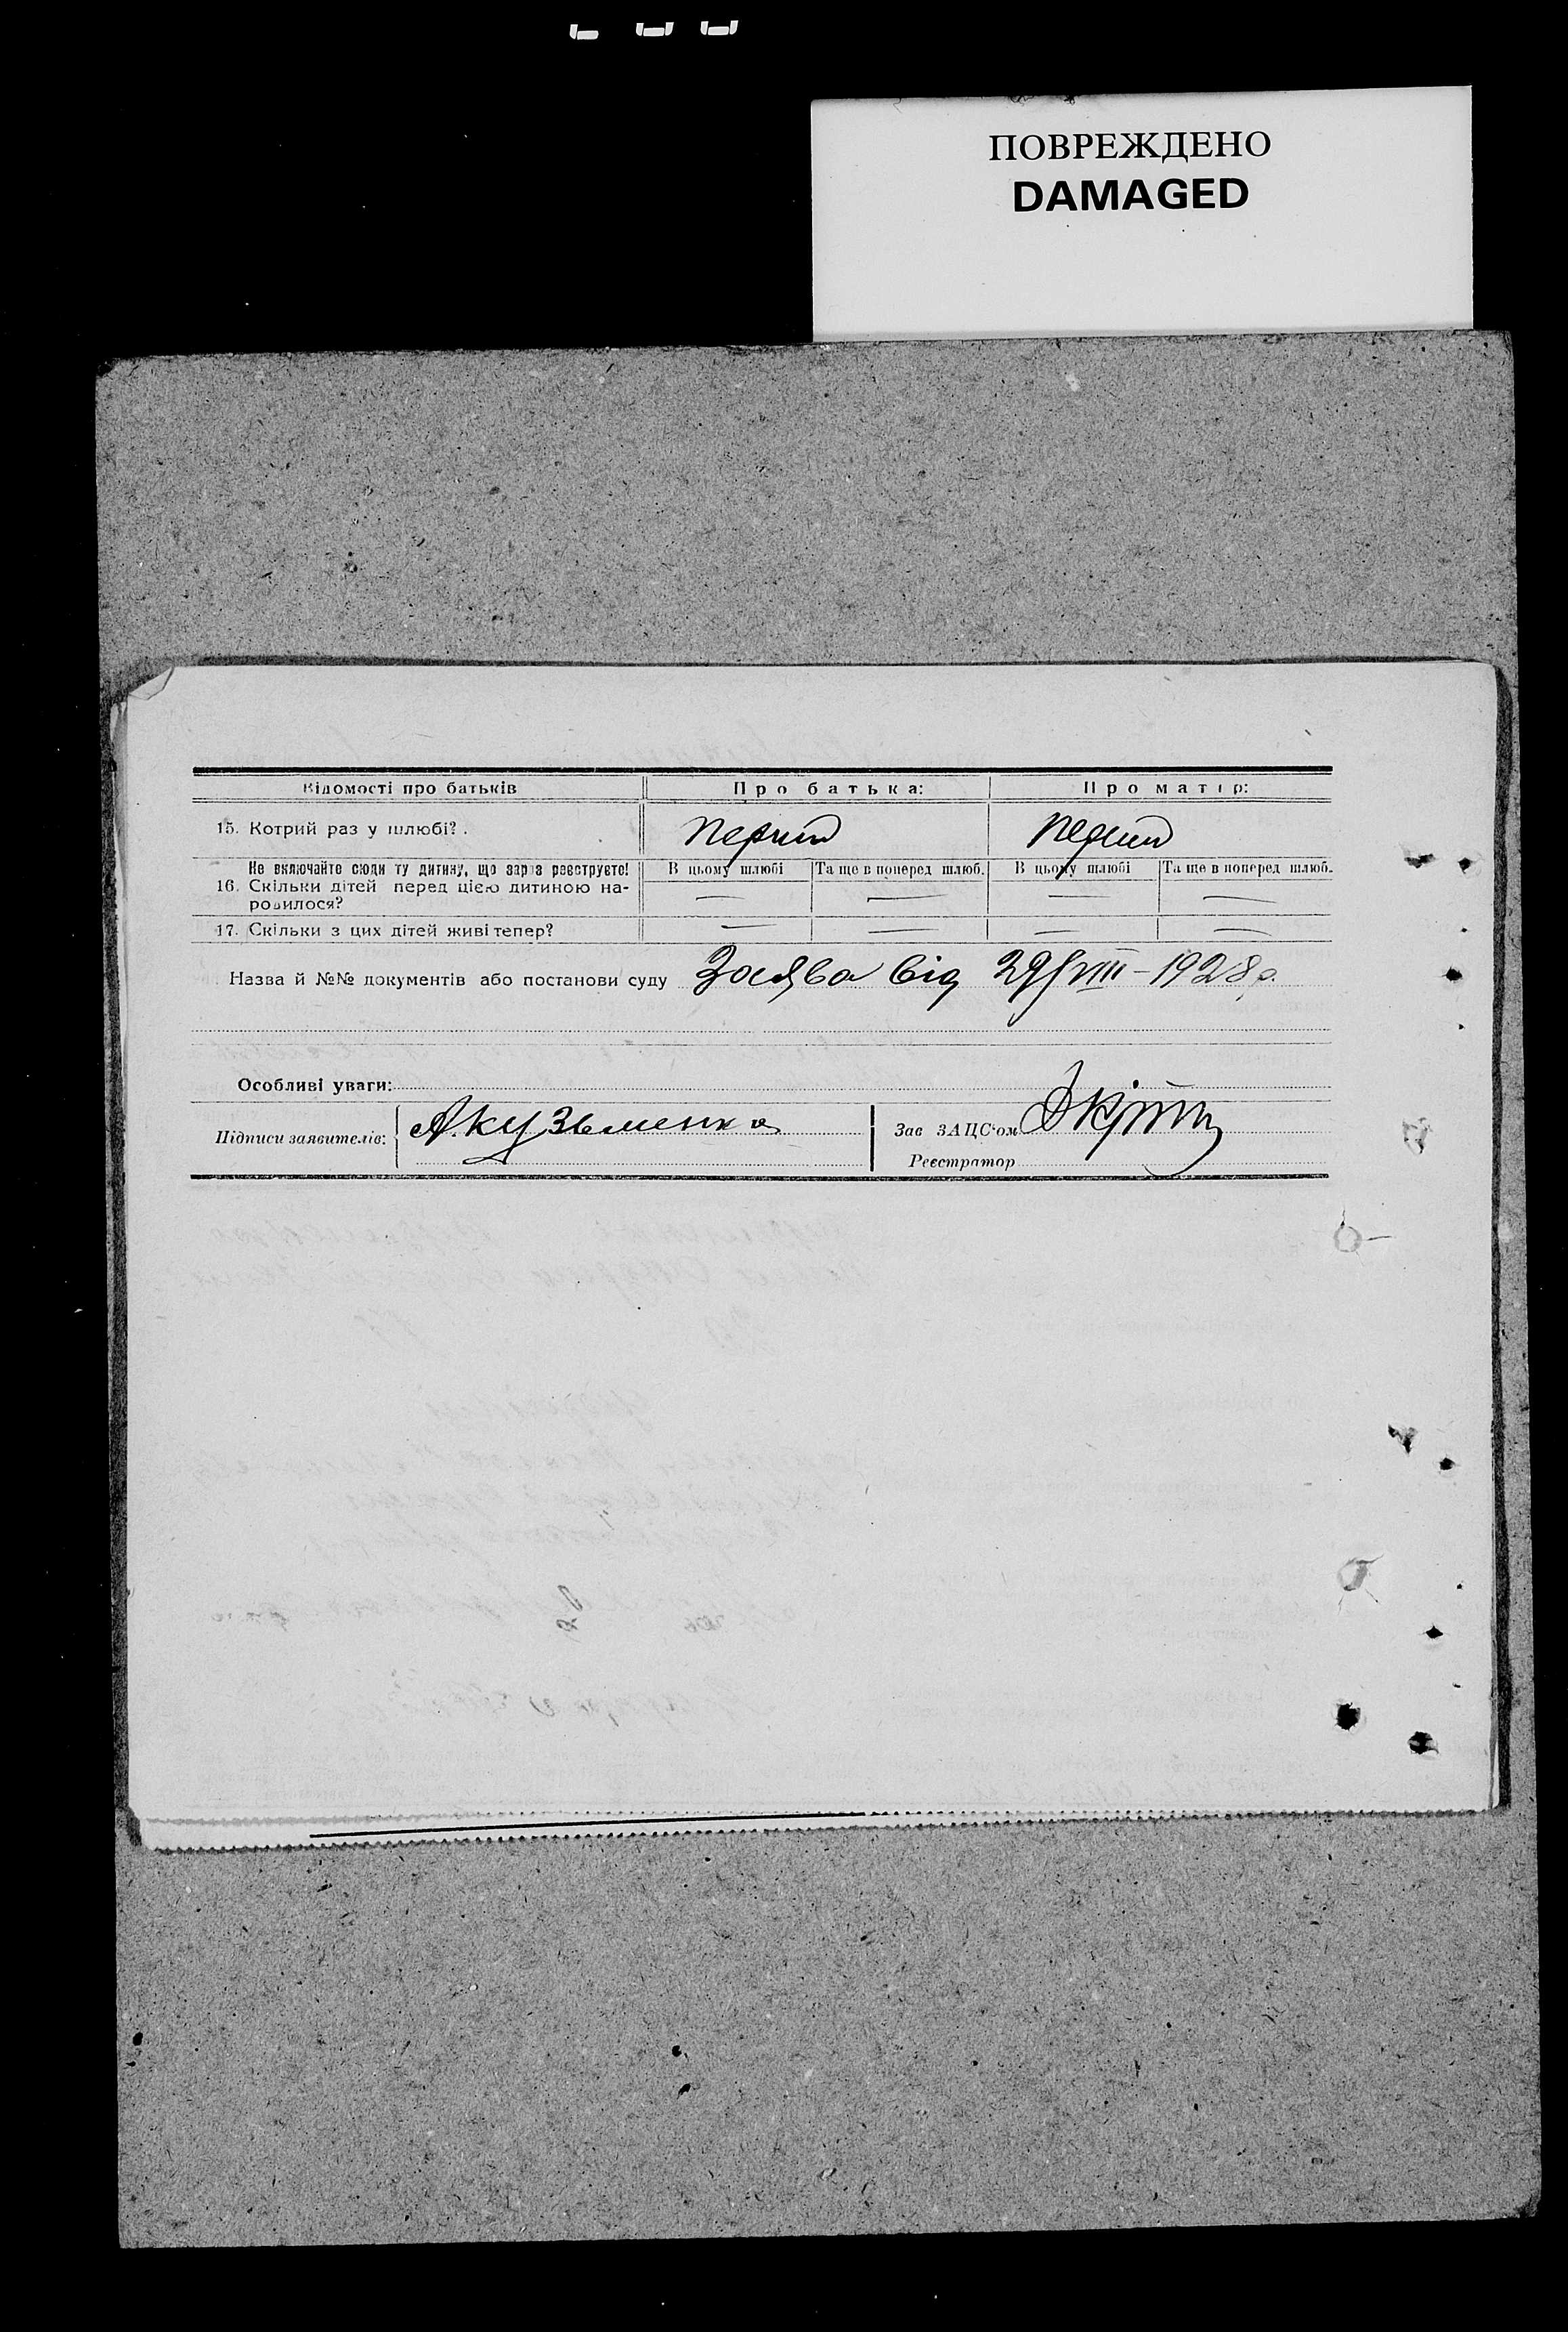 ПОВРЕЖДЕНО
DAMAGED
Відомості про батьків Про батька: Про матір:
15. Котрий раз у шлюбі? . перший перший
Не включайте сюди ту дитину, що зараз реєструєте! В цьому шлюбі Та ще в поперед шлюб. В цьому шлюбі Та ще в поперед шлюб.
16. Скільки дітей перед цією дитиною на-
родилося? — — — —
17. Скільки з цих дітей живі тепер? — — — —
Назва й №№ документів або постанови суду Заява від 29/VIII – 1928 р.
Особливі уваги:
Підписи заявителів: А. Кузьменко Зав ЗАЦС'ом
Реєстратор